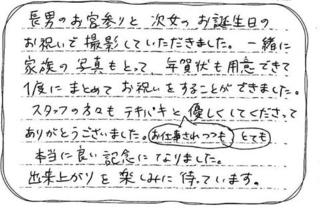 長男のお宮参りと 次女のお誕生日の
お祝いで撮影していただきました。一緒に
家族の写真もとって、年賀状も用意できて
1度にまとめてお祝いをすることができました。
スタッフの方々もテキパキと優しくしてくださって
ありがとうございました。お仕事されつつも とても
本当に良い記念になりました。
出来上がりを楽しみに待っています。